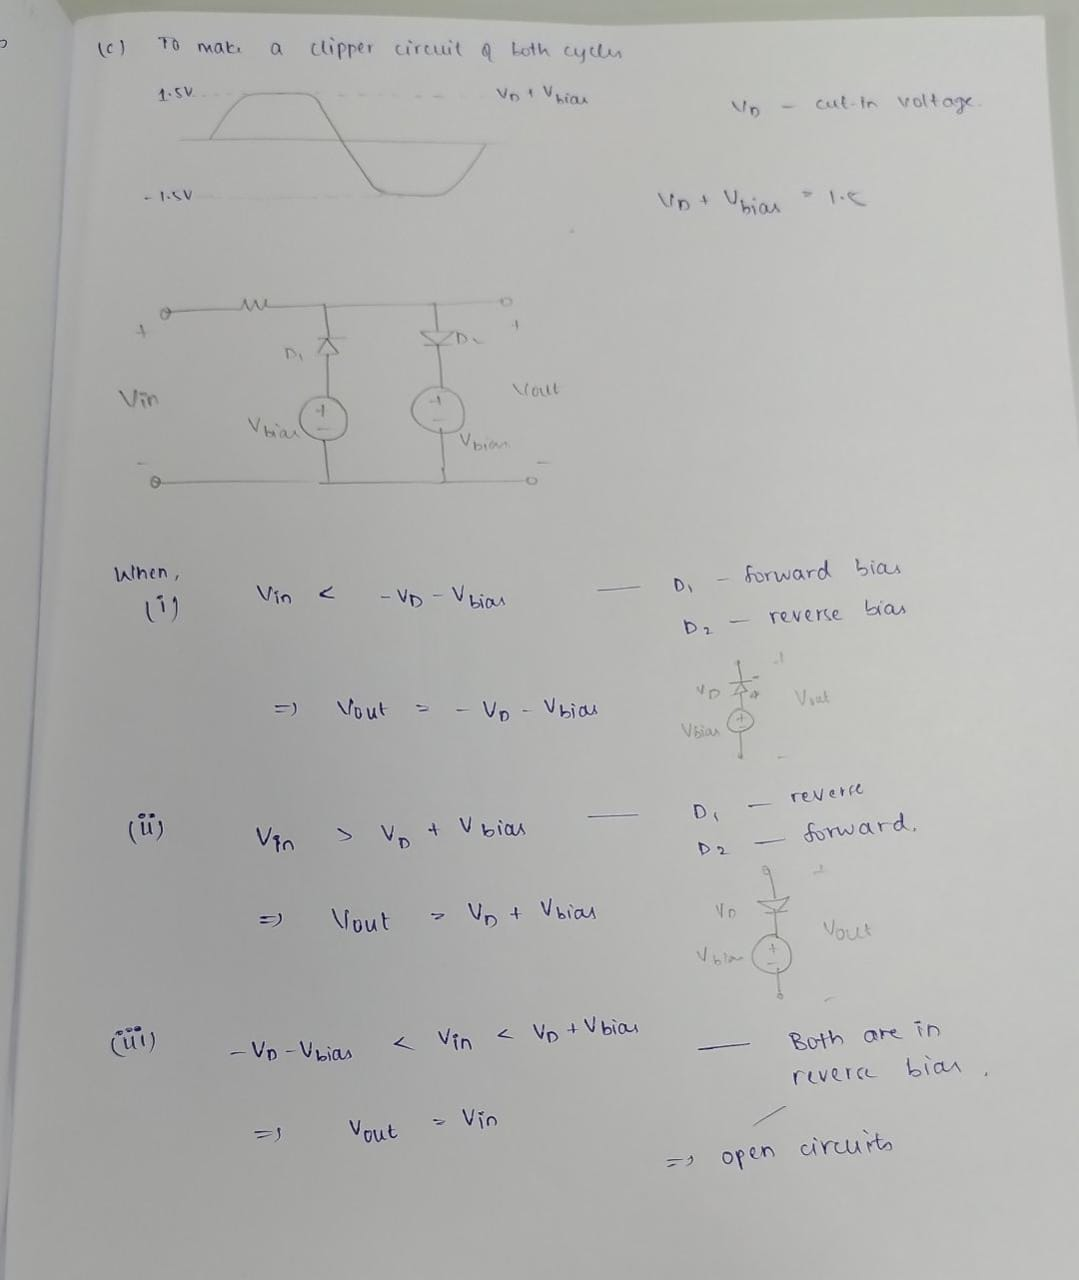 (c) To make a clipper circuit of both cycles
1.5V
VD + Vbias
VD - cut-in voltage.
- 1.5V
VD + Vbias = 1.5
+ +
D1 D2
Vin Vout
+ +
- -
Vbias Vbias
- -
When,
(i) Vin < -VD - Vbias — D1 - forward bias
D2 - reverse bias
=> Vout = - VD - Vbias
+
-
VD + Vout
Vbias +
-
(ii) Vin > VD + Vbias — D1 - reverse
D2 - forward.
=> Vout = VD + Vbias
+
VD Vout
Vbias +
-
-
(iii) -VD - Vbias < Vin < VD + Vbias — Both are in
reverse bias.
=> Vout = Vin
=> open circuits